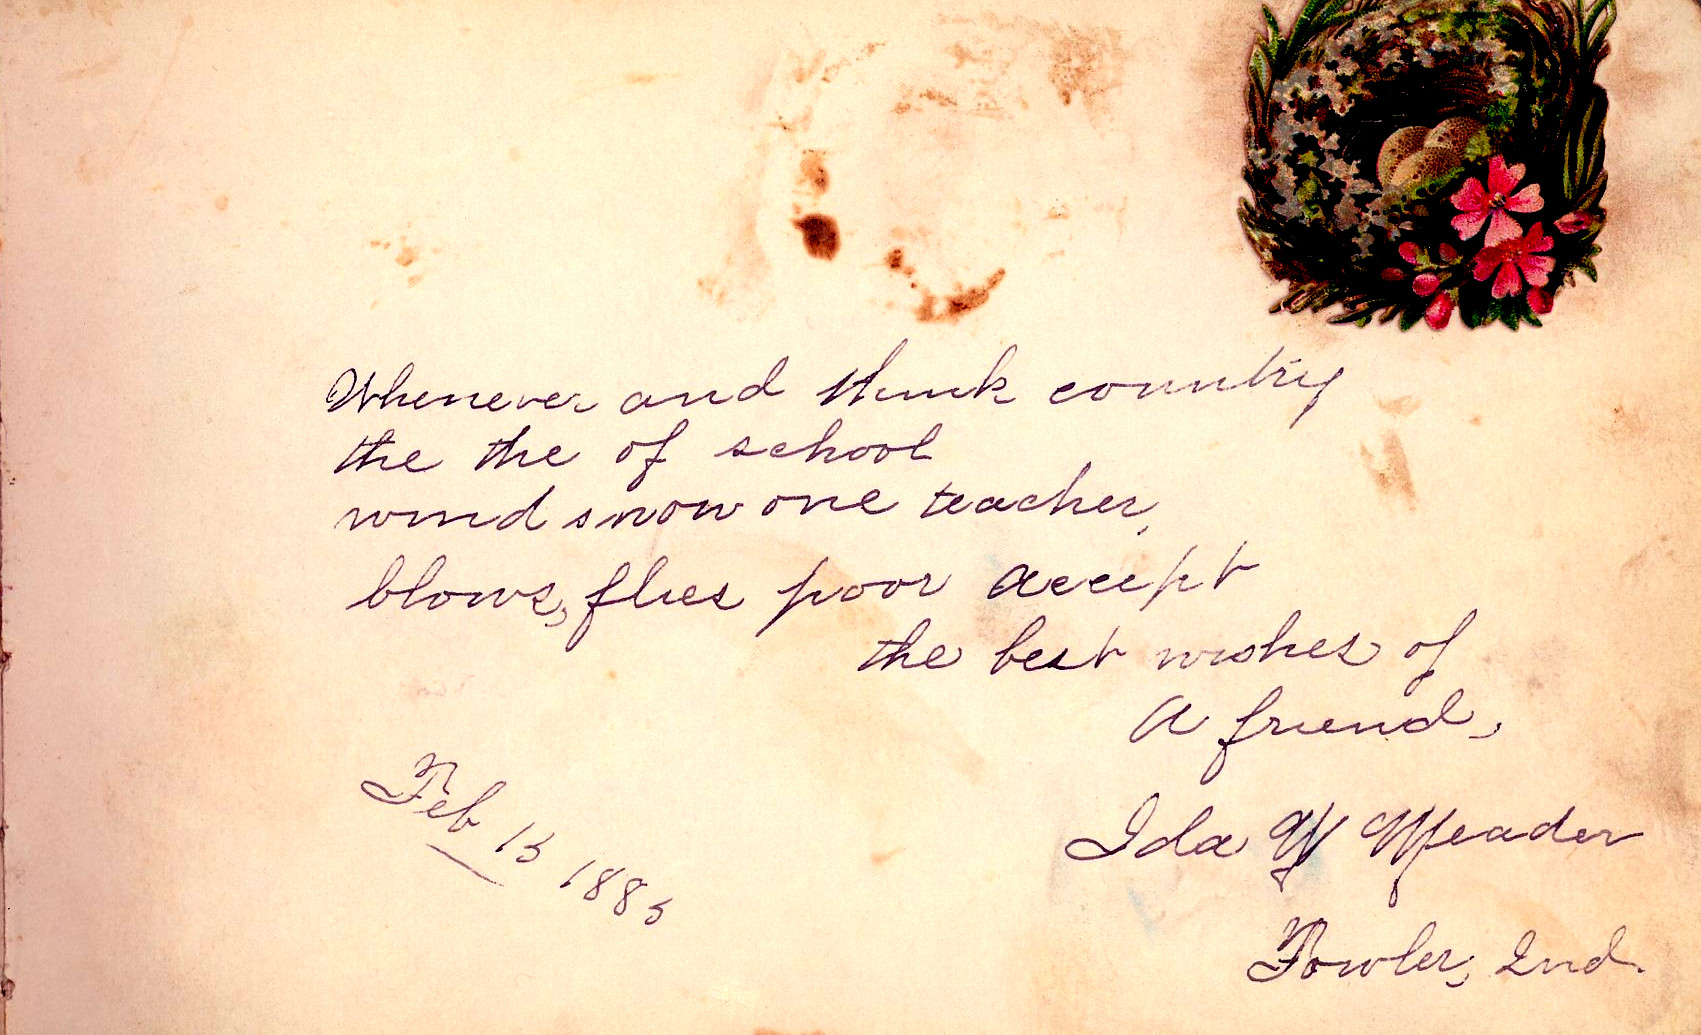 Whenever and think country
the the of school
wind snow one teacher,
blows, flies poor accept
the best wishes of
A friend,
Feb 15 1885
Ida M Meader
Fowler, Ind.